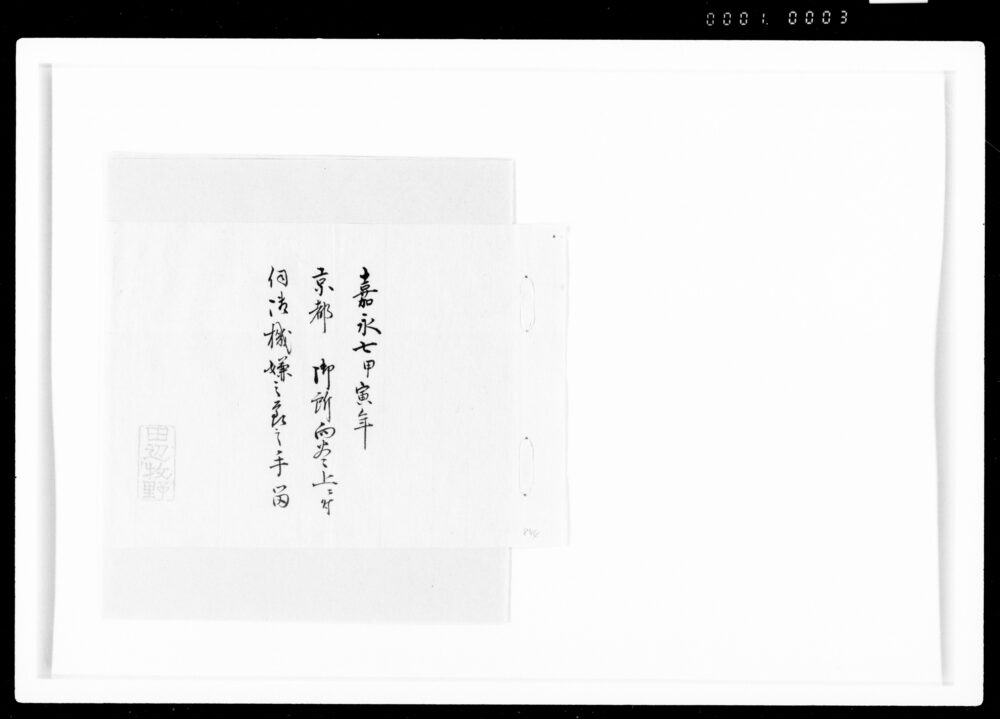 0001. 0003
嘉永七甲寅年
京都 御所向炎上ニ付
伺御機嫌之義之手留
田辺牧野